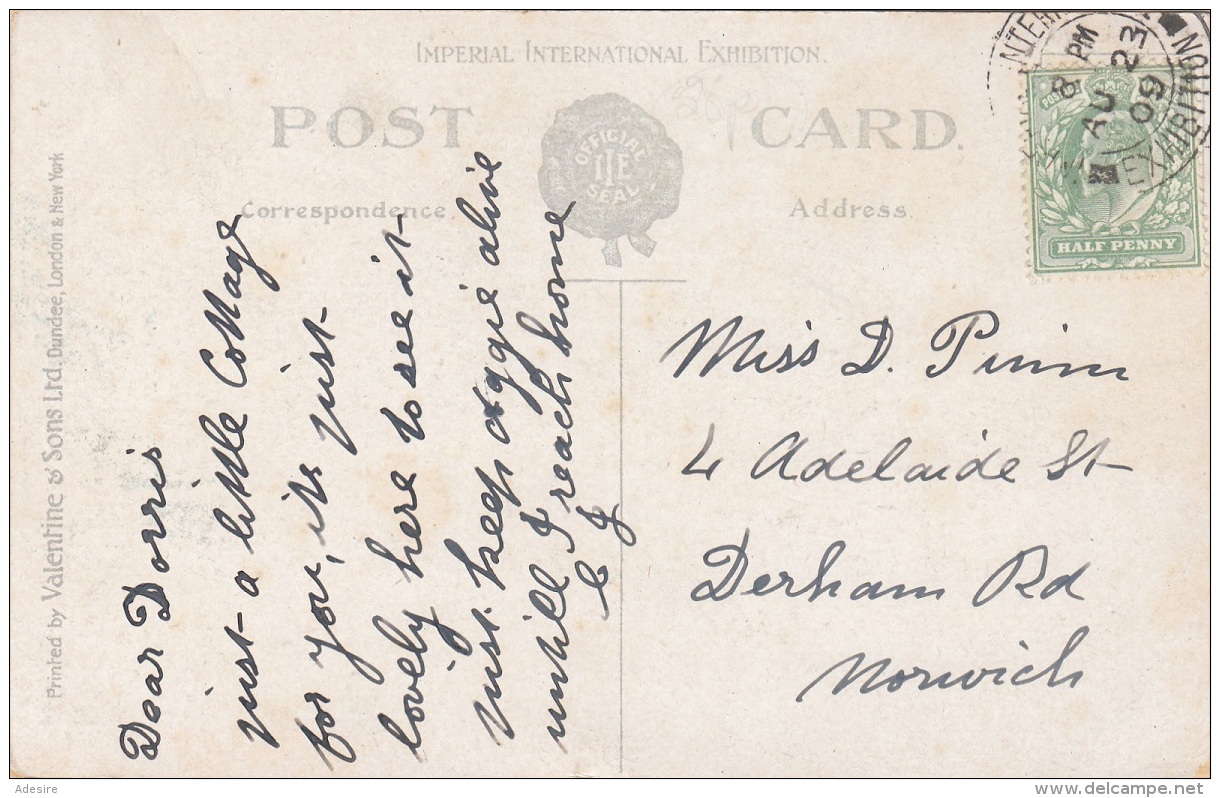 IMPERIAL INTERNATIONAL EXHIBITION.
POST CARD.
OFFICIAL
IIE
SEAL
Correspondence
Address
8 PM
AU 23
09
EXHIBITION
POSTAGE
HALF PENNY
Printed by Valentine & Sons Ltd, Dundee, London & New York
Dear Dorris
just a little Cottage
for you, its just
lovely here to see it
just keep aggie alive
untill I reach home
C G
Miss D. Pinn
4 Adelaide St
Derham Rd
Norwich
Adesire
delcampe.net